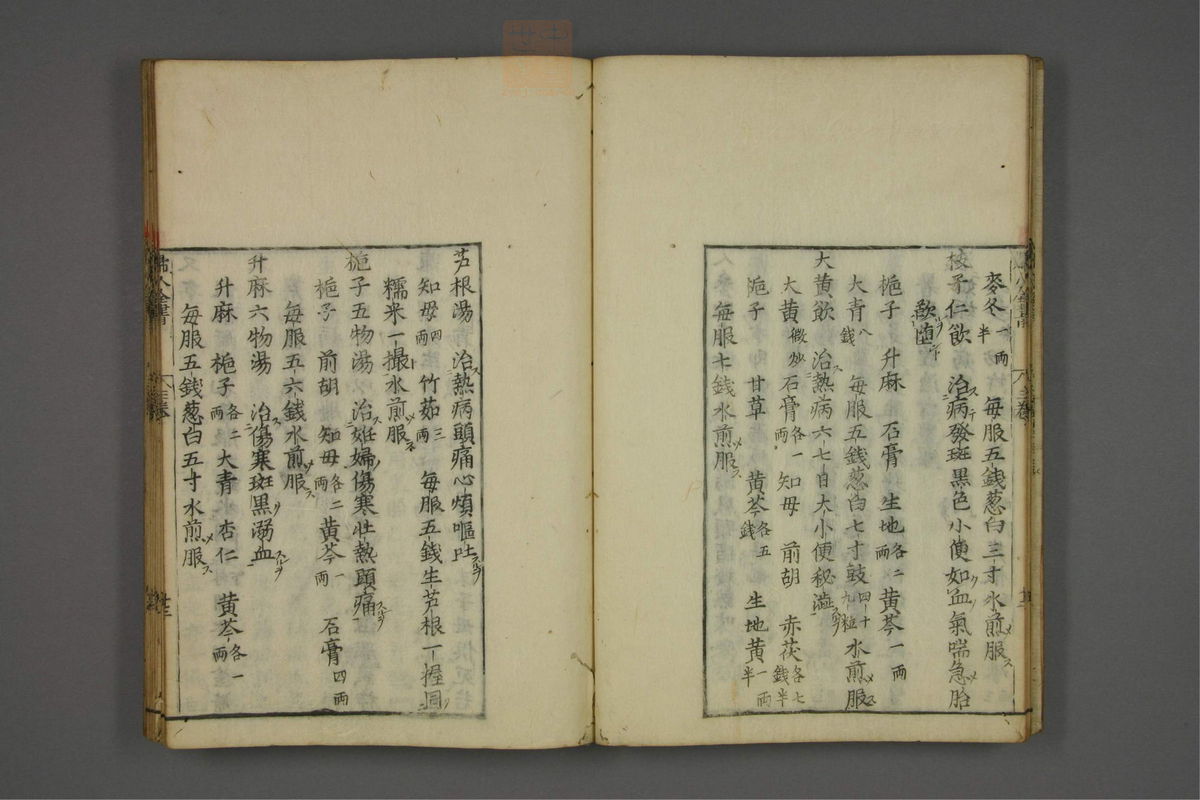 麥冬一兩半 每服五錢葱白三寸水煎服ス
梔子仁飲 治病發斑黒色小便如血氣喘急胎
欲墮
梔子 升麻 石膏 生地各二兩黄芩一兩
大青八錢 每服五錢葱白七寸豉四十九粒水煎服
大黄飲 治熱病六七日大小便秘澁
大黄微炒石膏各一兩知母 前胡 赤茯各七錢半
梔子 甘草 黄芩各五錢 生地黄一兩半
每服七錢水煎服ス
芦根湯 治熱病頭痛心煩嘔吐
知母四兩竹茹三兩 每服五錢生芦根一握
糯米一撮水煎服
梔子五物湯 治妊婦傷寒壯熱頭痛
梔子 前胡 知母各二兩黄芩一兩 石膏四兩
每服五六錢水煎服ス
升麻六物湯 治傷寒斑黒溺血
升麻 梔子各二兩大青 杏仁 黄芩各一兩
每服五錢葱白五寸水煎服ス